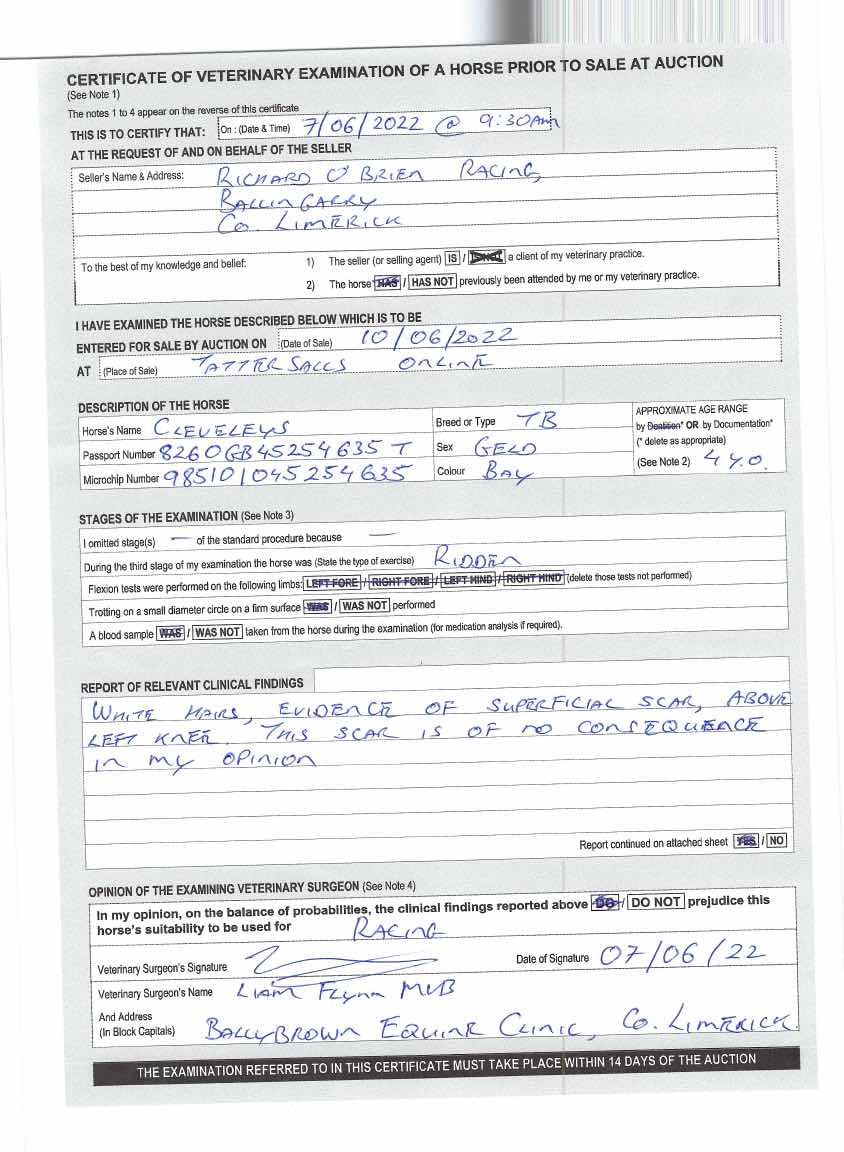 CERTIFICATE OF VETERINARY EXAMINATION OF A HORSE PRIOR TO SALE AT AUCTION
(See Note 1)
The notes 1 to 4 appear on the reverse of this certificate
THIS IS TO CERTIFY THAT: On : (Date & Time) 7/06/2022 @ 9:30am
AT THE REQUEST OF AND ON BEHALF OF THE SELLER
Seller's Name & Address: RICHARD O'BRIEN RACING,
BALLINGARRY
CO. LIMERICK
To the best of my knowledge and belief: 1) The seller (or selling agent) IS / IS NOT a client of my veterinary practice.
2) The horse HAS / HAS NOT previously been attended by me or my veterinary practice.
I HAVE EXAMINED THE HORSE DESCRIBED BELOW WHICH IS TO BE
ENTERED FOR SALE BY AUCTION ON (Date of Sale) 10/06/2022
AT (Place of Sale) TATTERSALLS ONLINE
DESCRIPTION OF THE HORSE
Horse's Name CLEVELEYS Breed or Type TB APPROXIMATE AGE RANGE
by Dentition* OR by Documentation*
Passport Number 8260GB45254635 T Sex GELD (* delete as appropriate)
Microchip Number 985101045254635 Colour BAY (See Note 2) 4 Y.O.
STAGES OF THE EXAMINATION (See Note 3)
I omitted stage(s) — of the standard procedure because —
During the third stage of my examination the horse was (State the type of exercise) RIDDEN
Flexion tests were performed on the following limbs: LEFT FORE / RIGHT FORE / LEFT HIND / RIGHT HIND (delete those tests not performed)
Trotting on a small diameter circle on a firm surface WAS / WAS NOT performed
A blood sample WAS / WAS NOT taken from the horse during the examination (for medication analysis if required).
REPORT OF RELEVANT CLINICAL FINDINGS
WHITE HAIRS, EVIDENCE OF SUPERFICIAL SCAR, ABOVE
LEFT KNEE. THIS SCAR IS OF NO CONSEQUENCE
IN MY OPINION
Report continued on attached sheet YES / NO
OPINION OF THE EXAMINING VETERINARY SURGEON (See Note 4)
In my opinion, on the balance of probabilities, the clinical findings reported above DO / DO NOT prejudice this
horse's suitability to be used for RACING
Veterinary Surgeon's Signature Date of Signature 07/06/22
Veterinary Surgeon's Name LIAM FLYNN MVB
And Address
(In Block Capitals) BALLYBROWN EQUINE CLINIC, CO. LIMERICK.
THE EXAMINATION REFERRED TO IN THIS CERTIFICATE MUST TAKE PLACE WITHIN 14 DAYS OF THE AUCTION